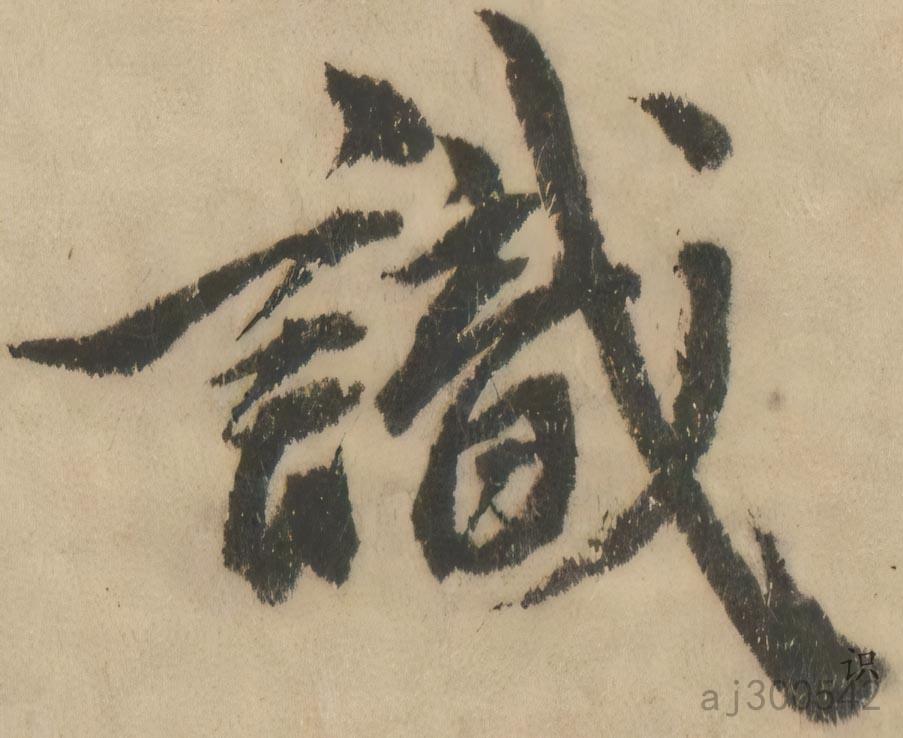 識
识
aj300542